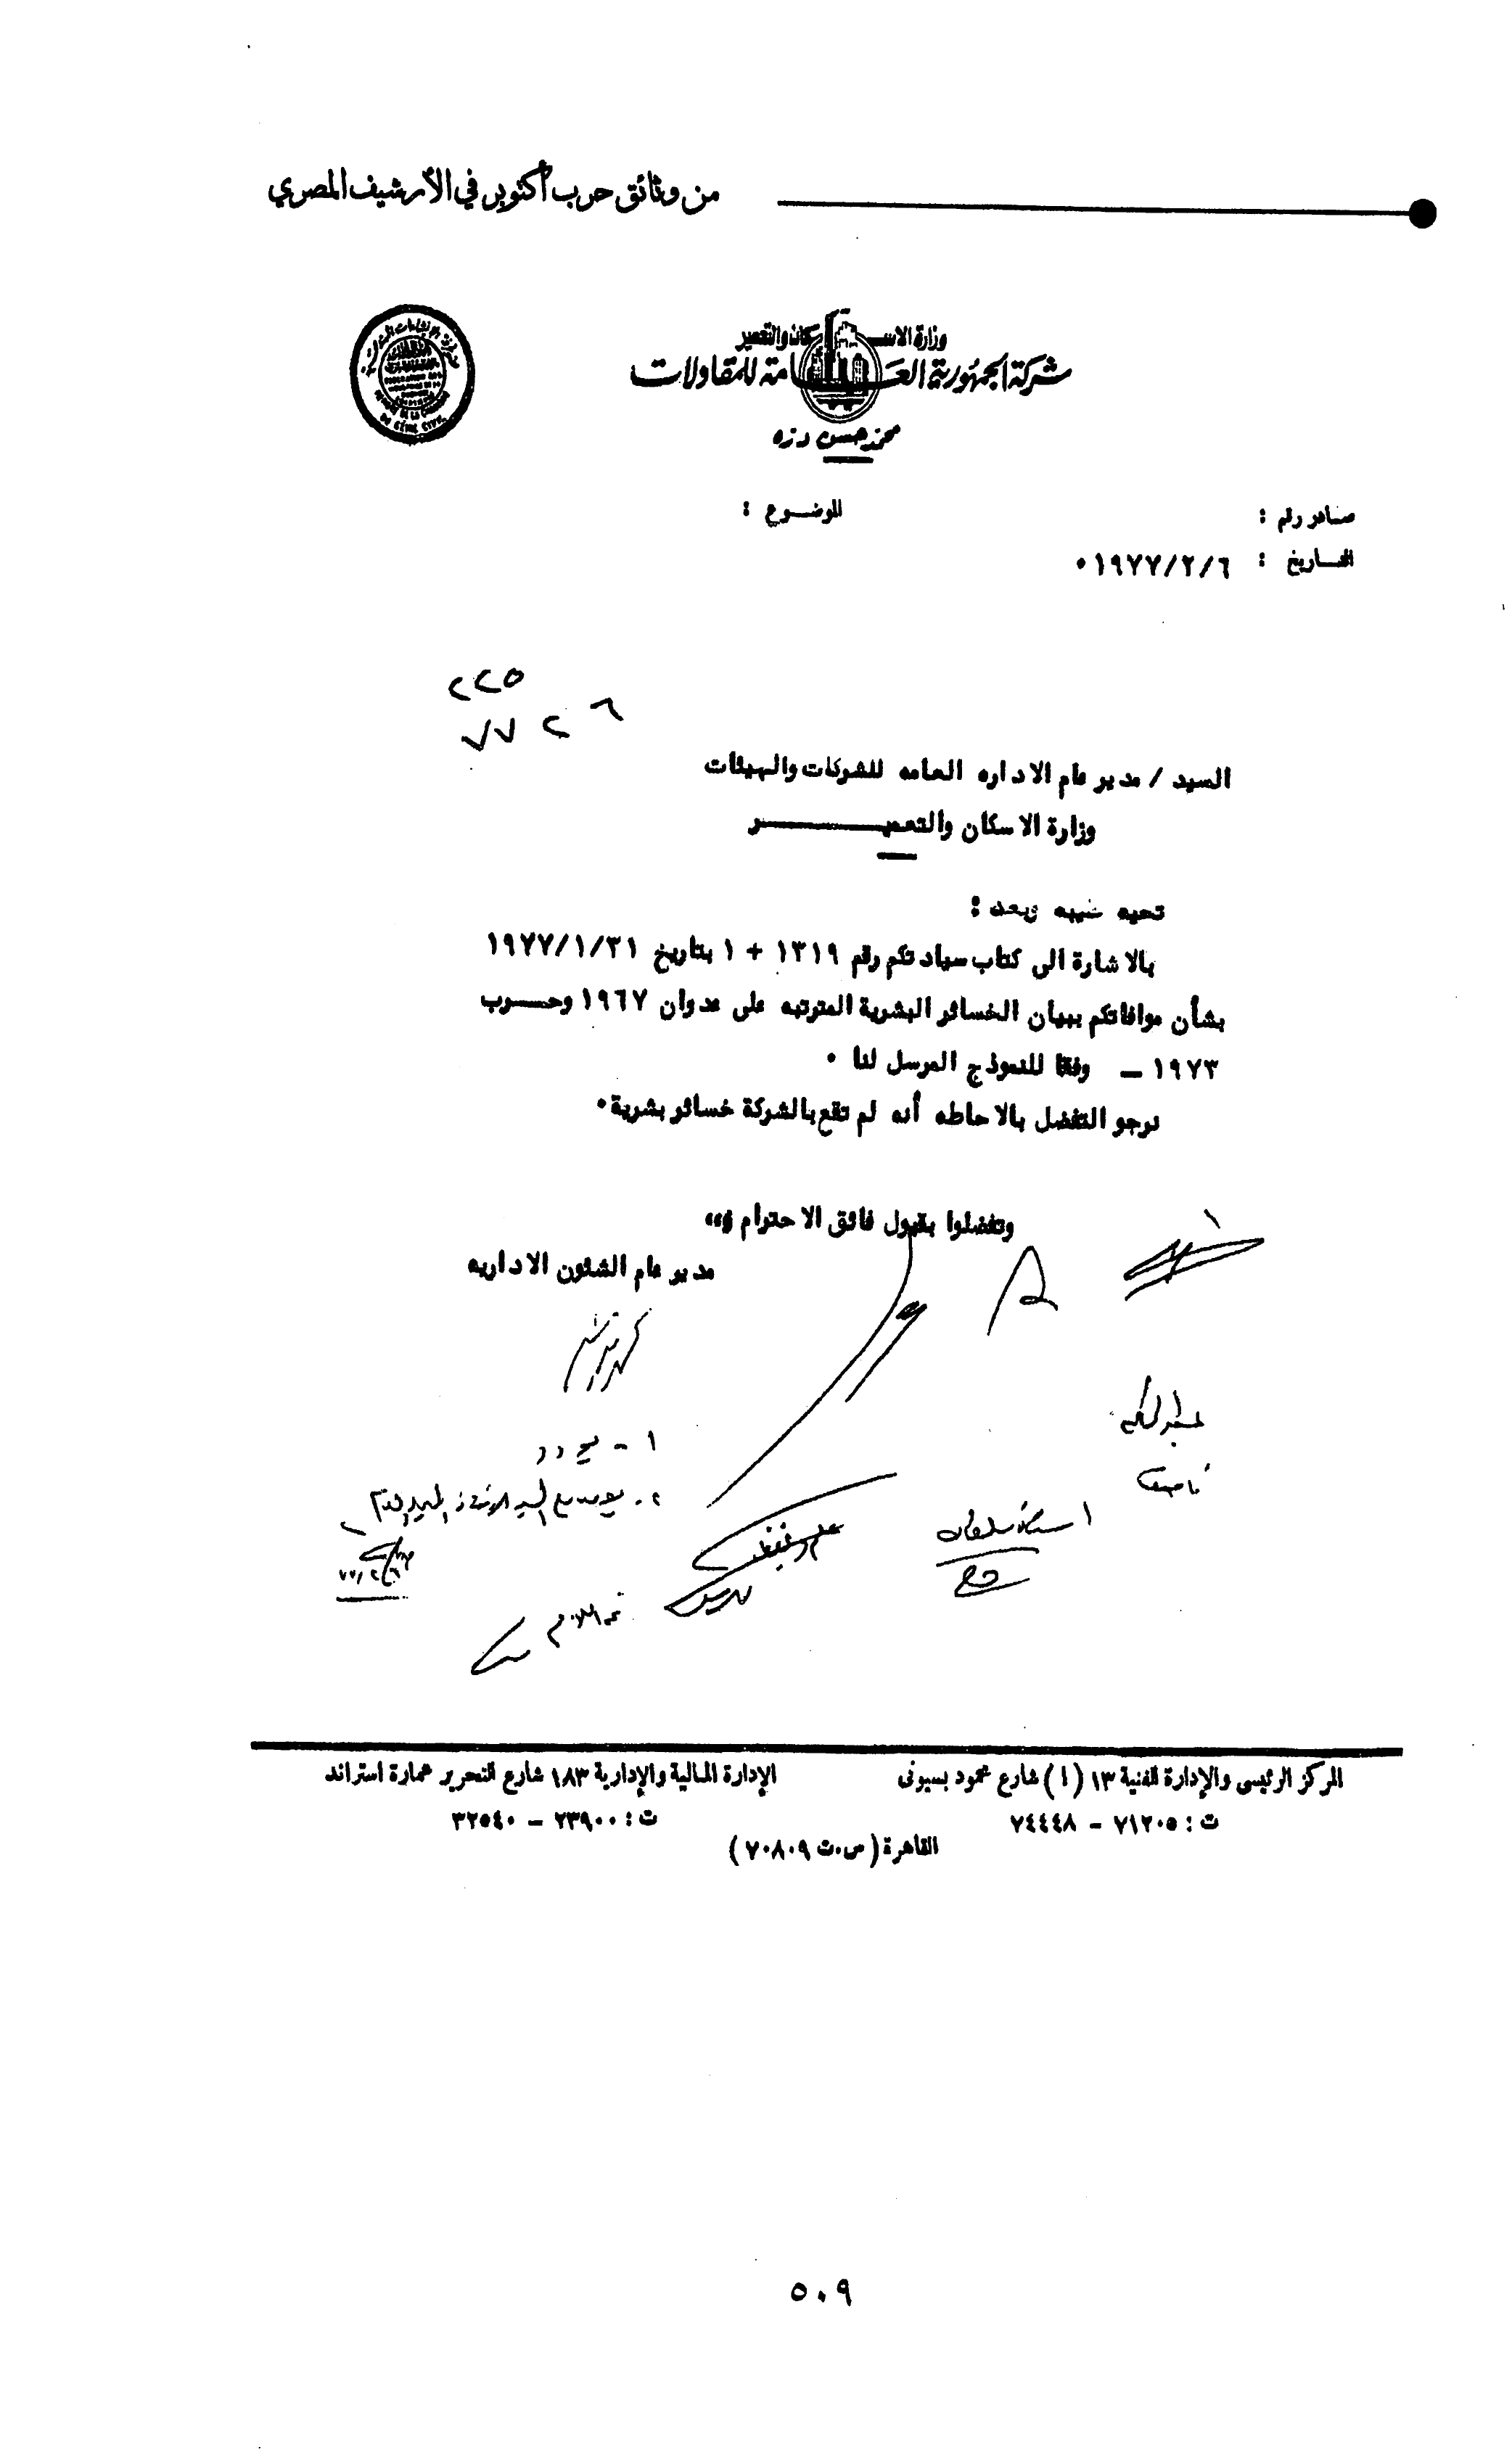 من وثائق حرب أكتوبر في الأرشيف المصري
وزارة الاسكان والتعمير
شركة الجمهورية العامة للمقاولات
محمد حسن دره
صادر رقم :
الموضوع :
التاريخ : ١٩٧٧/٢/٦ ٠
٢٢٥
٦ ٢ ٧٧
السيد / مدير عام الاداره العامه للشركات والهيئات
وزارة الاسكان والتعمير
تحيه طيبه وبعد :
بالاشارة الى كتاب سيادتكم رقم ١٣١٩ + ١ بتاريخ ١٩٧٧/١/٣١
بشأن موافاتكم ببيان الخسائر البشرية المترتبه على عدوان ١٩٦٧ وحرب
١٩٧٣ – وفقا للنموذج المرسل لنا ٠
نرجو التفضل بالاحاطه أنه لم تقع بالشركة خسائر بشرية ٠
وتفضلوا بقبول فائق الاحترام ،،،
مدير عام الشئون الاداريه
المركز الرئيسى والإدارة الفنية ١٣ (أ) شارع محمود بسيونى
ت : ٧١٢٠٥ – ٧٤٤٤٨
الإدارة المالية والإدارية ١٨٣ شارع التحرير عمارة استراند
ت : ٢٣٩٠٠ – ٣٢٥٤٠
القاهرة (س.ت ٧٠٨٠٩)
٥٠٩